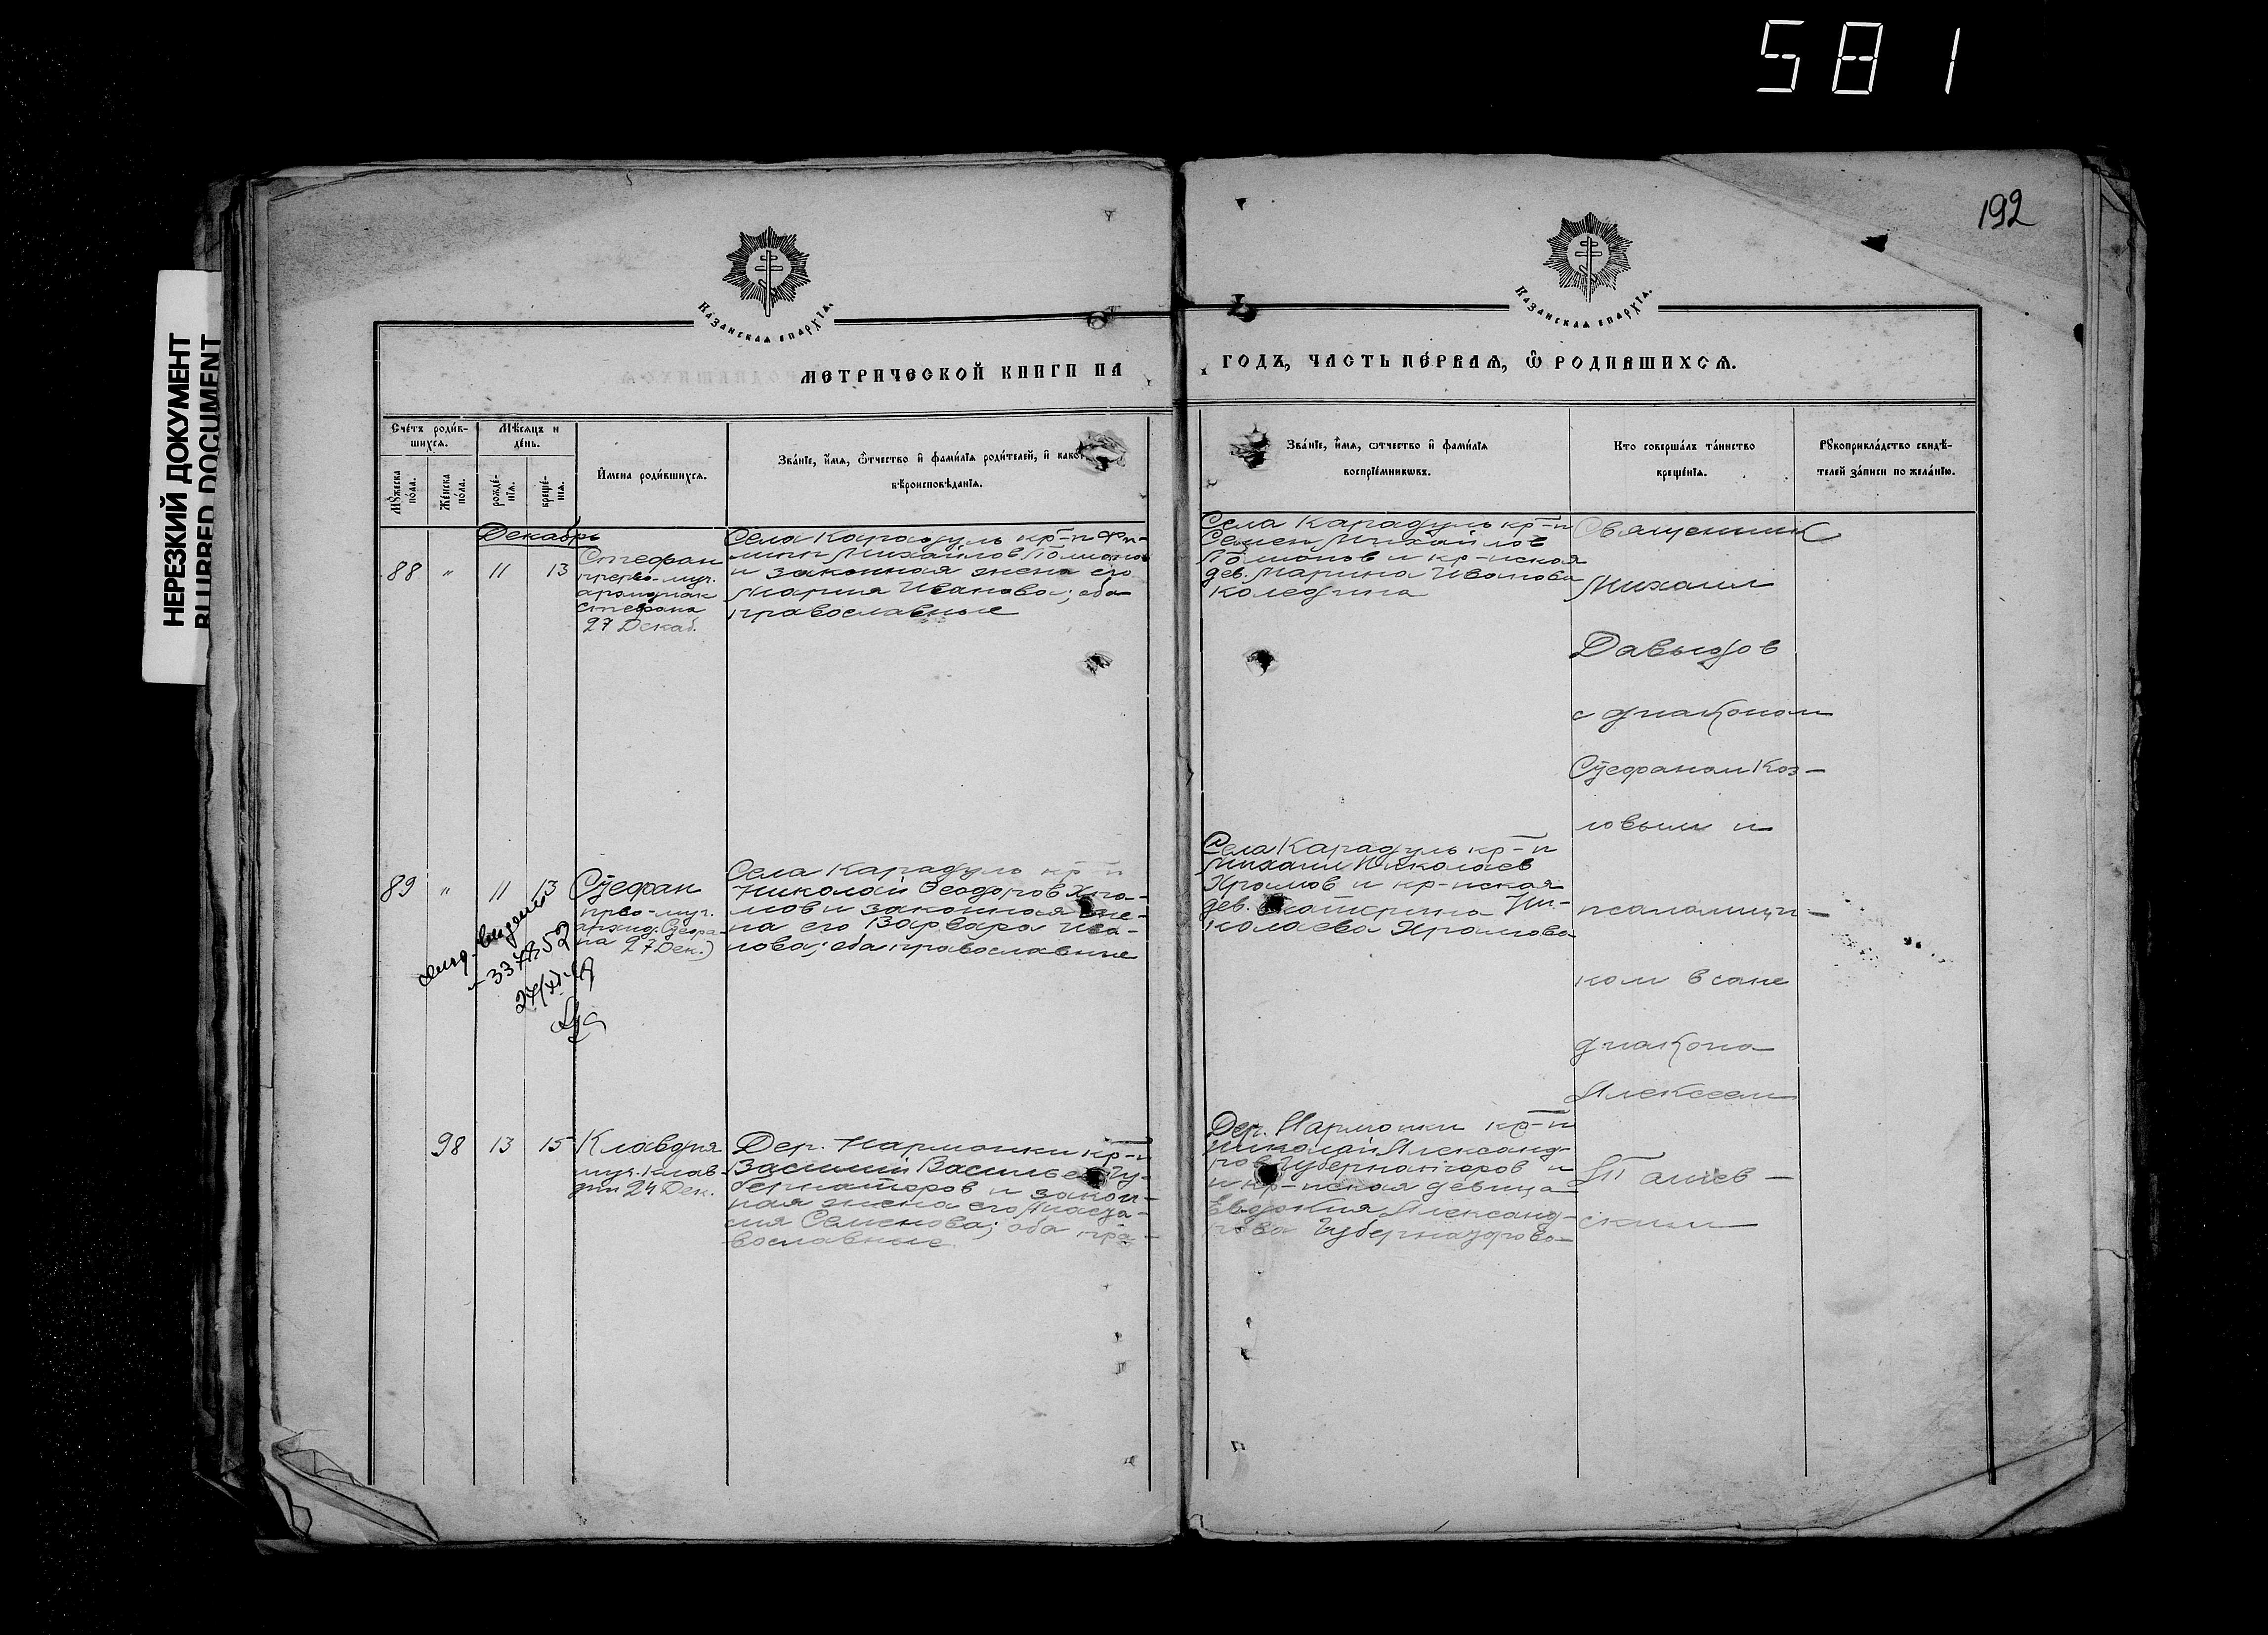 581
192
НЕРЕЗКИЙ ДОКУМЕНТ
BLURRED DOCUMENT
Казанская епархїа.
Казанская епархїа.
МЕТРИЧЕСКОЙ КНИГИ НА
ГОДЪ, ЧАСТЬ ПЕ́РВАЯ, Ѿ РОДИВШИХСЯ.
Сче́тъ роди́в-
шихся.
Мѣ́сяцъ и
де́нь.
Мꙋ́жеска по́ла.
Же́нска по́ла.
рожде́-
нїя.
креще́-
нїя.
И҆мена роди́вшихся.
Зва́нїе, и҆́мя, ѻ҆́тчество и҆ фами́лїя роди́телей, и҆ како́
вѣ́роисповѣ́данїя.
Зва́нїе, и҆́мя, ѻ҆тчество и҆ фами́лїя
воспрїе́мниковъ.
Кто соверша́лъ та́инство
креще́нїя.
Рꙋкоприкла́дство свидѣ́-
телей за́писи по жела́нїю.
Декабрь
88 " 11 13
Стефан
перво-муч.
архидиак
Стефана
27 Декаб.
Села Карадуль кр-н Фи-
липп Михайлов
и законная жена его
Мария Иванова; оба
православные
Села Карадуль кр-н
Семен Михайлов
и кр-нская
дев. Марина Иванова
Коледина
Священник
Михаил
Давыдов
с диаконом
Стефаном Коз-
ловым и
псаломщи-
ком в сане
диакона
Алексеем
89 " 11 13
Стефан
прво-муч.
архид. Стефа-
на 27 Дек.)
Села Карадуль кр-н
Николай Феодоров Хра-
мов и законная же-
на его Варвара Ива-
нова; оба православные
Села Карадуль кр-н
Михаил Николаев
Храмов и кр-нская
дев. Екатерина Ни-
колаева Храмова
337852
98 13 15
Клавдия
муч. Клав-
дии 24 Дек.
Дер. Нармонки кр-н
Василий Васильев Гу-
бернаторов и закон-
ная жена его Анаста-
сия Семенова; оба пра-
вославные
Дер. Нармонки кр-н
Николай Александ-
ров Губернаторов и
и кр-нская девица
Евдокия Александ-
рова Губернаторова